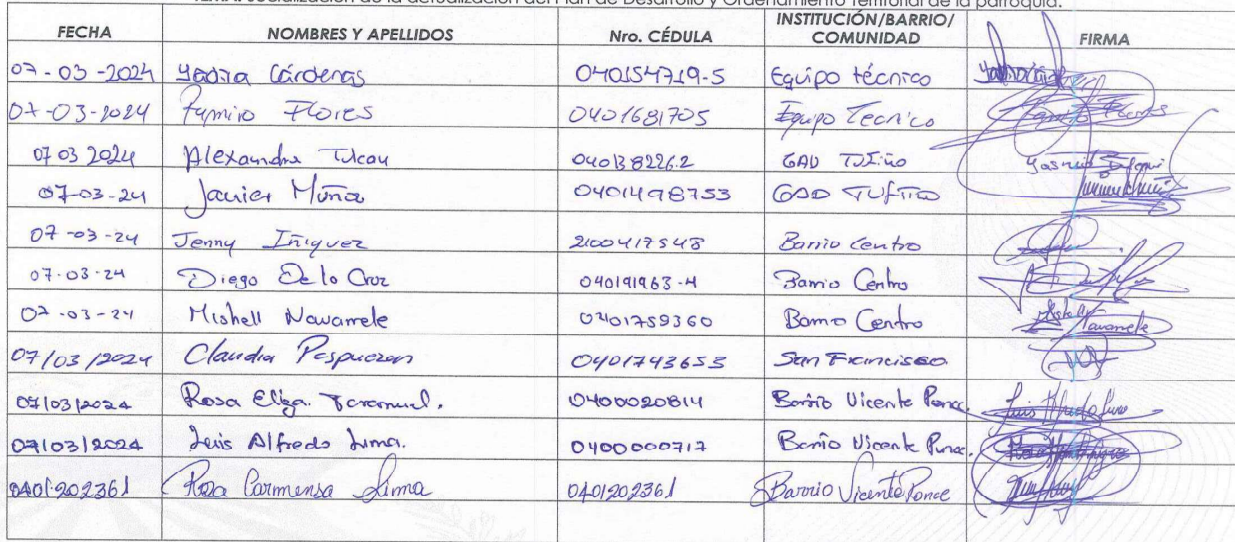 TEMA: Socialización de la actualización del Plan de Desarrollo y Ordenamiento Territorial de la parroquia.
FECHA NOMBRES Y APELLIDOS Nro. CÉDULA INSTITUCIÓN/BARRIO/COMUNIDAD FIRMA
07-03-2024 Yadira Cárdenas 040154719-5 Equipo técnico
07-03-2024 Ramiro Flores 0401681705 Equipo Tecnico
07 03 2024 Alexandra 040138226.2 GAD Tufiño
07-03-24 Javier 0401498753 GAD Tufiño
07-03-24 Jenny Iñiguez 2100417548 Barrio Centro
07-03-24 Diego De la Cruz 040191963-4 Barrio Centro
07-03-24 Mishell Navarrete 0401759360 Barrio Centro
07/03/2024 Claudia 0401743653 San Francisco
07/03/2024 Rosa Elisa 0400020814 Barrio Vicente Ponce. Luis Alfredo Lima
07/03/2024 Luis Alfredo Lima. 0400000717 Barrio Vicente Ponce.
0401202361 Rosa Carmensa Lima 0401202361 Barrio Vicente Ponce